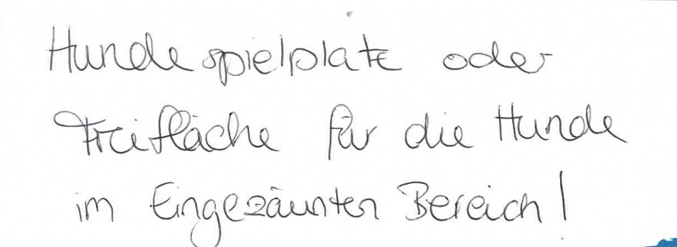 Hundespielplatz oder
Freifläche für die Hunde
im Eingezäunten Bereich!